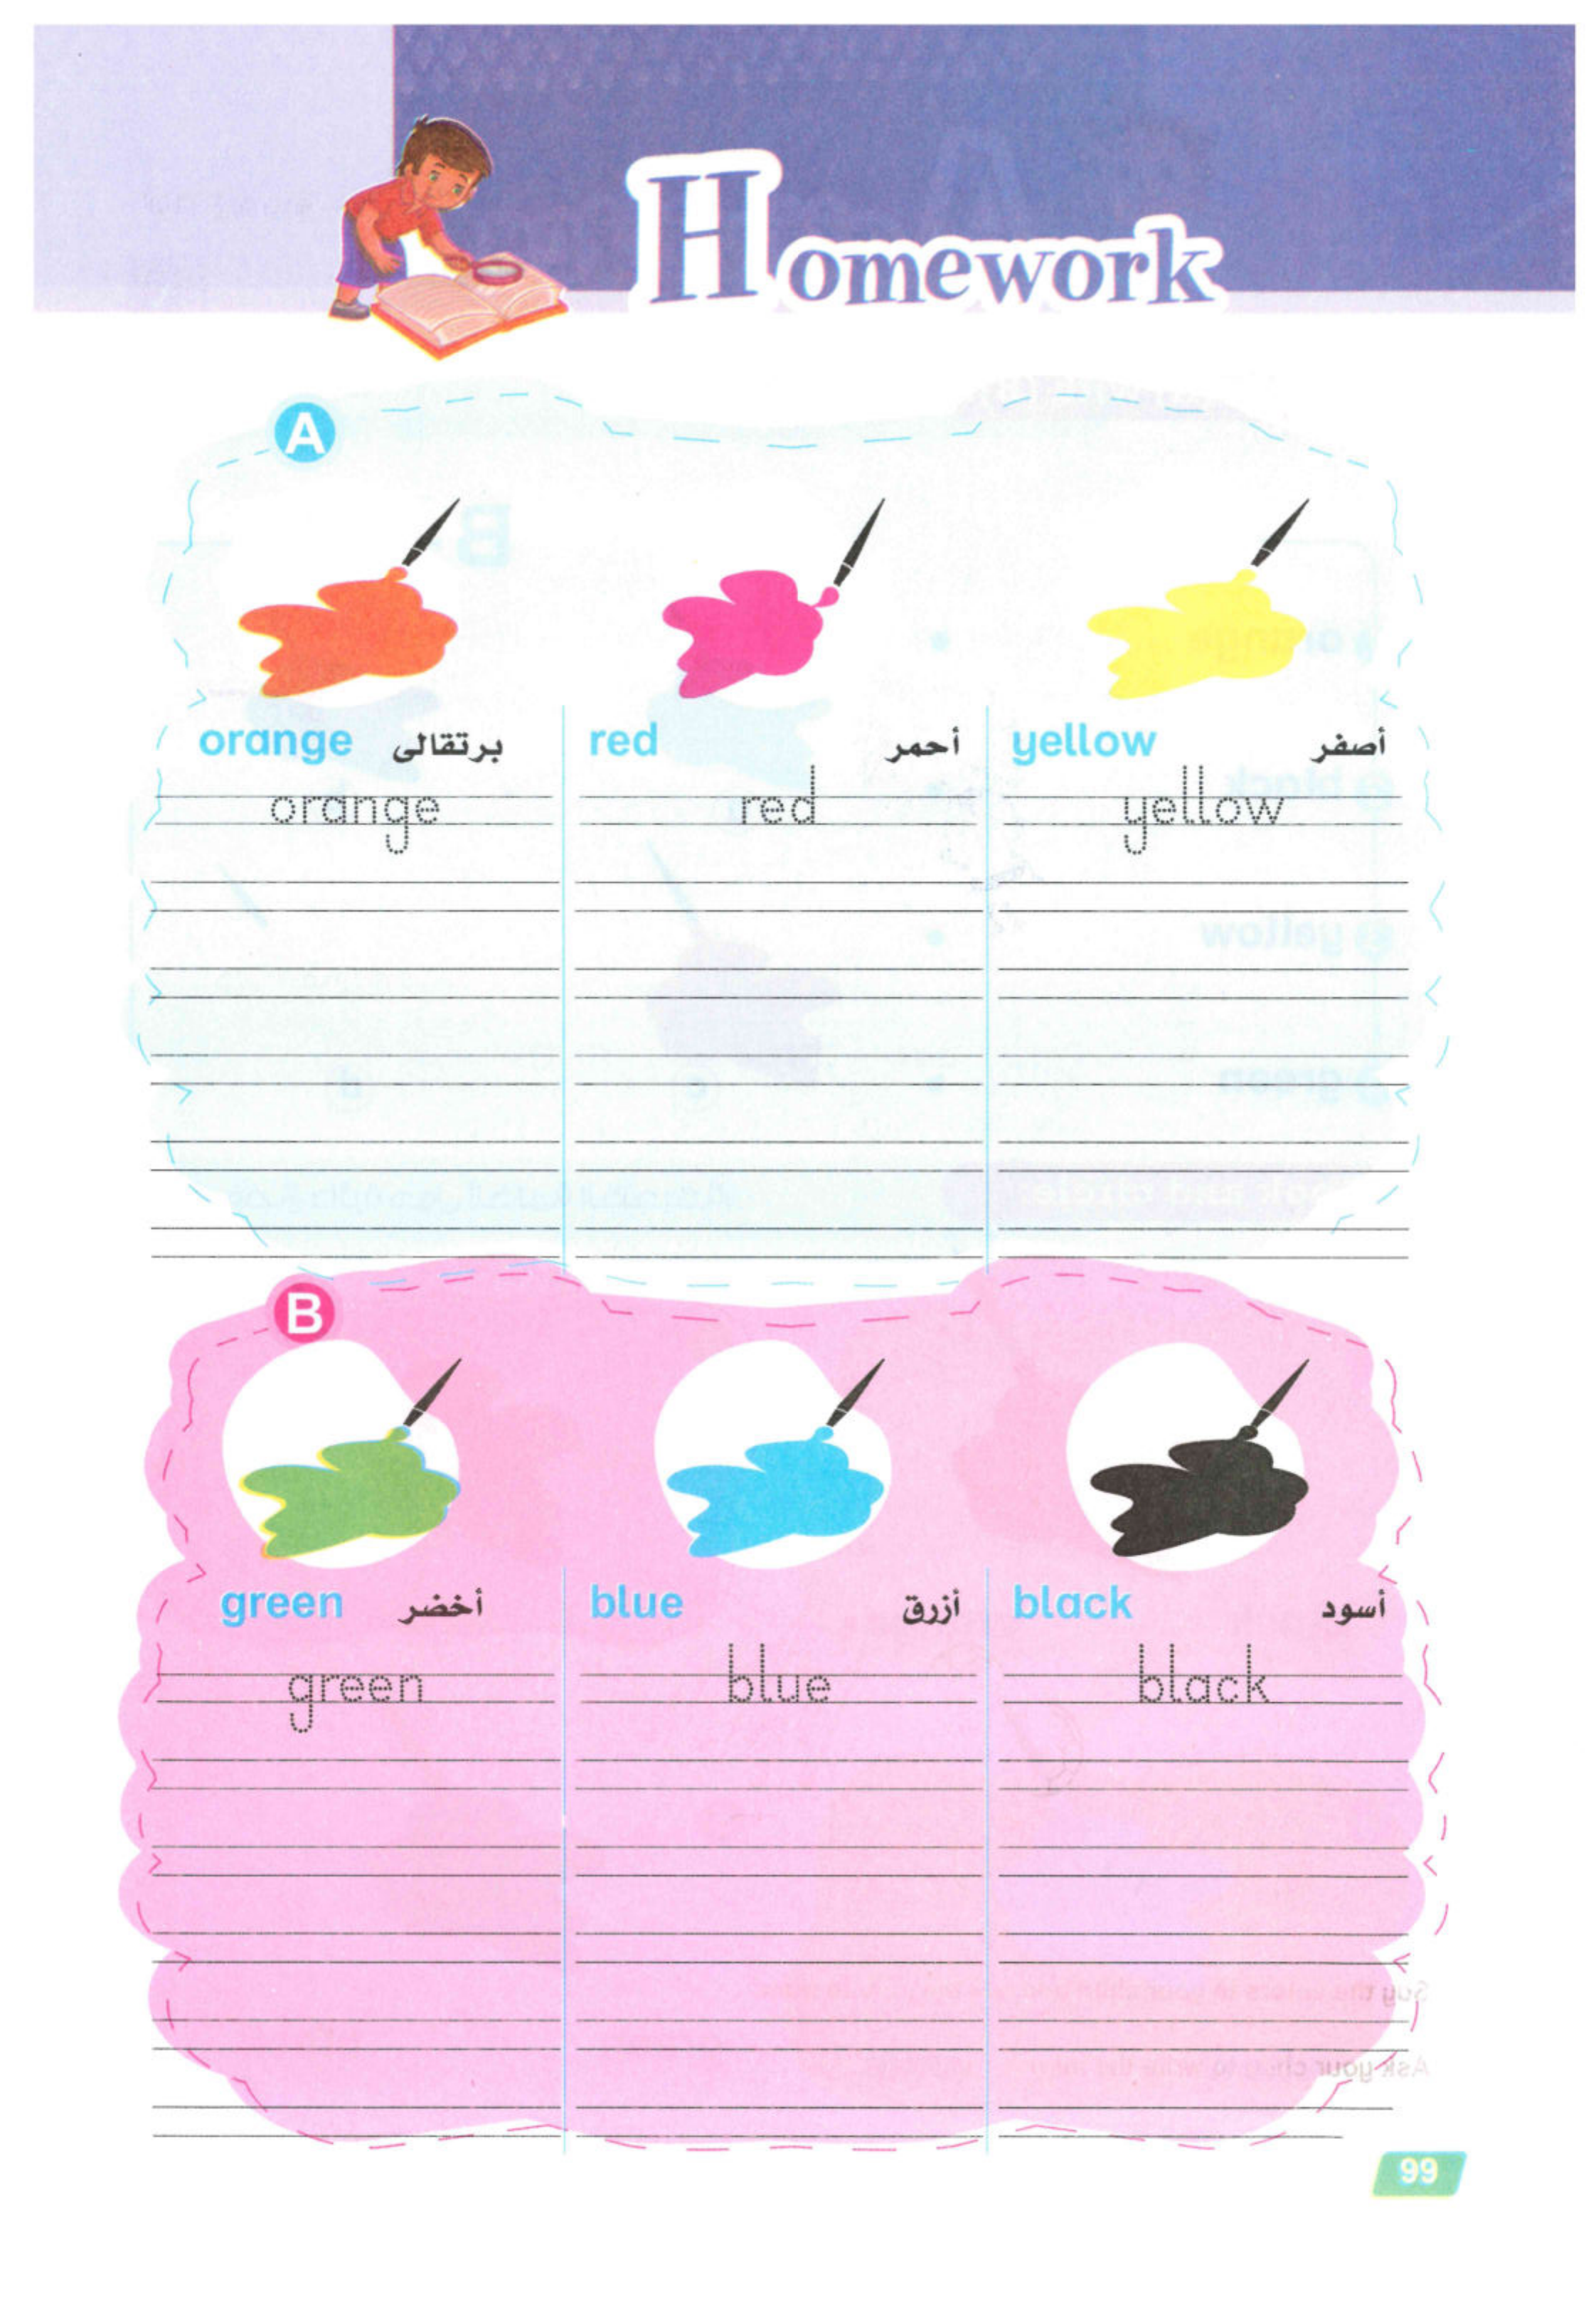 Homework
A
orange برتقالى red أحمر yellow أصفر
orange red yellow
B
green أخضر blue أزرق black أسود
green blue black
99